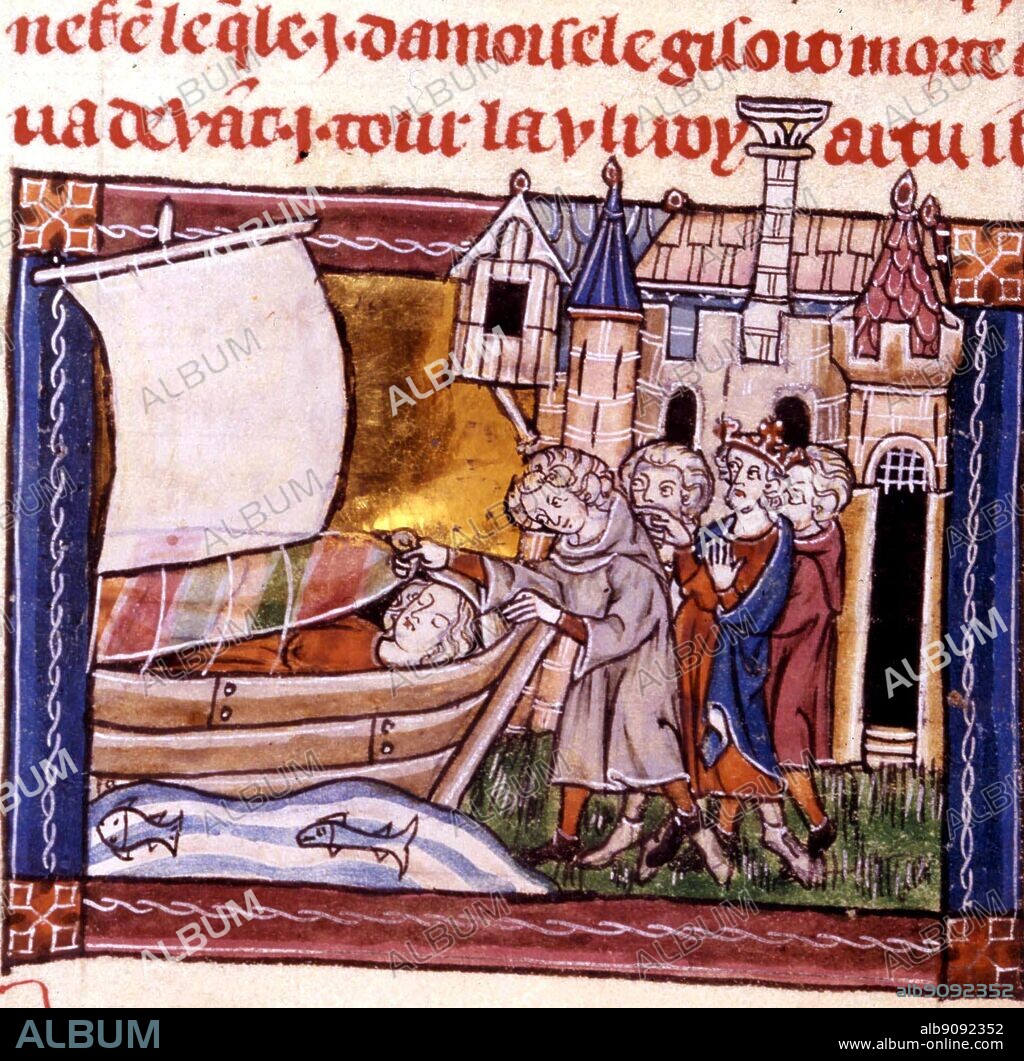 nef ē leq̄le ·j· damoisele gisoit morte
ua deuāt ·j· tour la v li roy artu
ALBUM
alb9092352
ALBUM
alb9092352
www.album-online.com